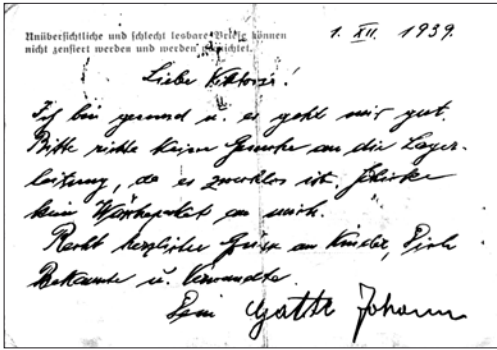 Unübersichtliche und schlecht lesbare Briefe können
nicht zensiert werden und werden vernichtet.
1. XII. 1939.
Liebe Viktoria!
Ich bin gesund u. es geht mir gut.
Bitte richte keine Gesuche an die Lager-
leitung, da es zwecklos ist. Schicke
kein Wäschepaket an mich.
Recht herzliche Grüsse an Kinder, Dich
Bekannte u. Verwandte.
Dein Gatte Johann